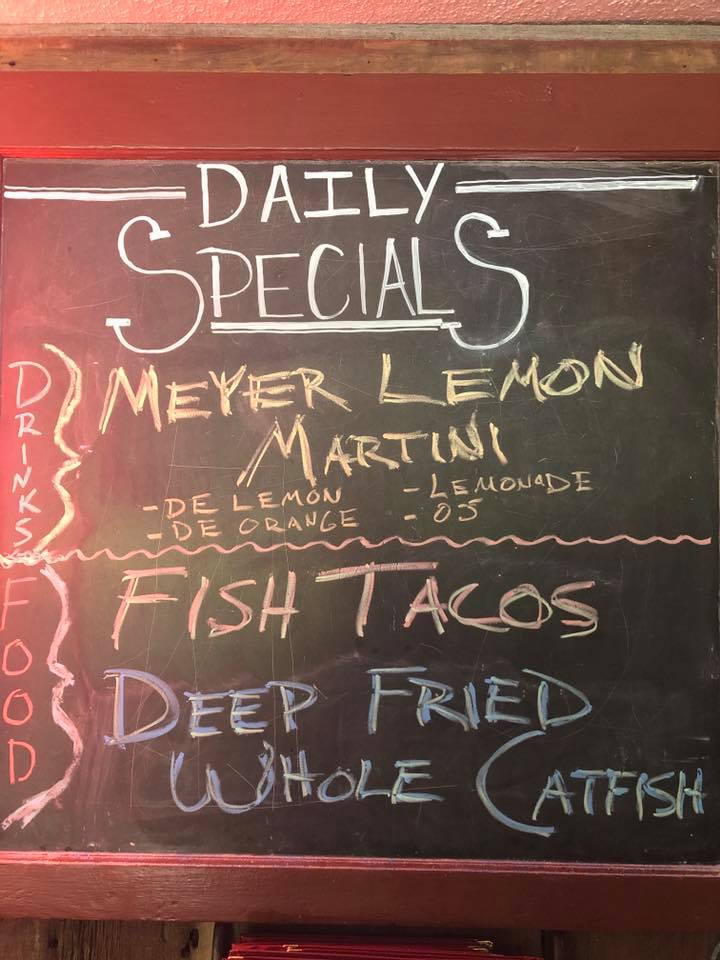 DAILY
SPECIALS
DRINKS
MEYER LEMON
MARTINI
- DE LEMON - LEMONADE
- DE ORANGE - OJ
FOOD
FISH TACOS
DEEP FRIED
WHOLE CATFISH